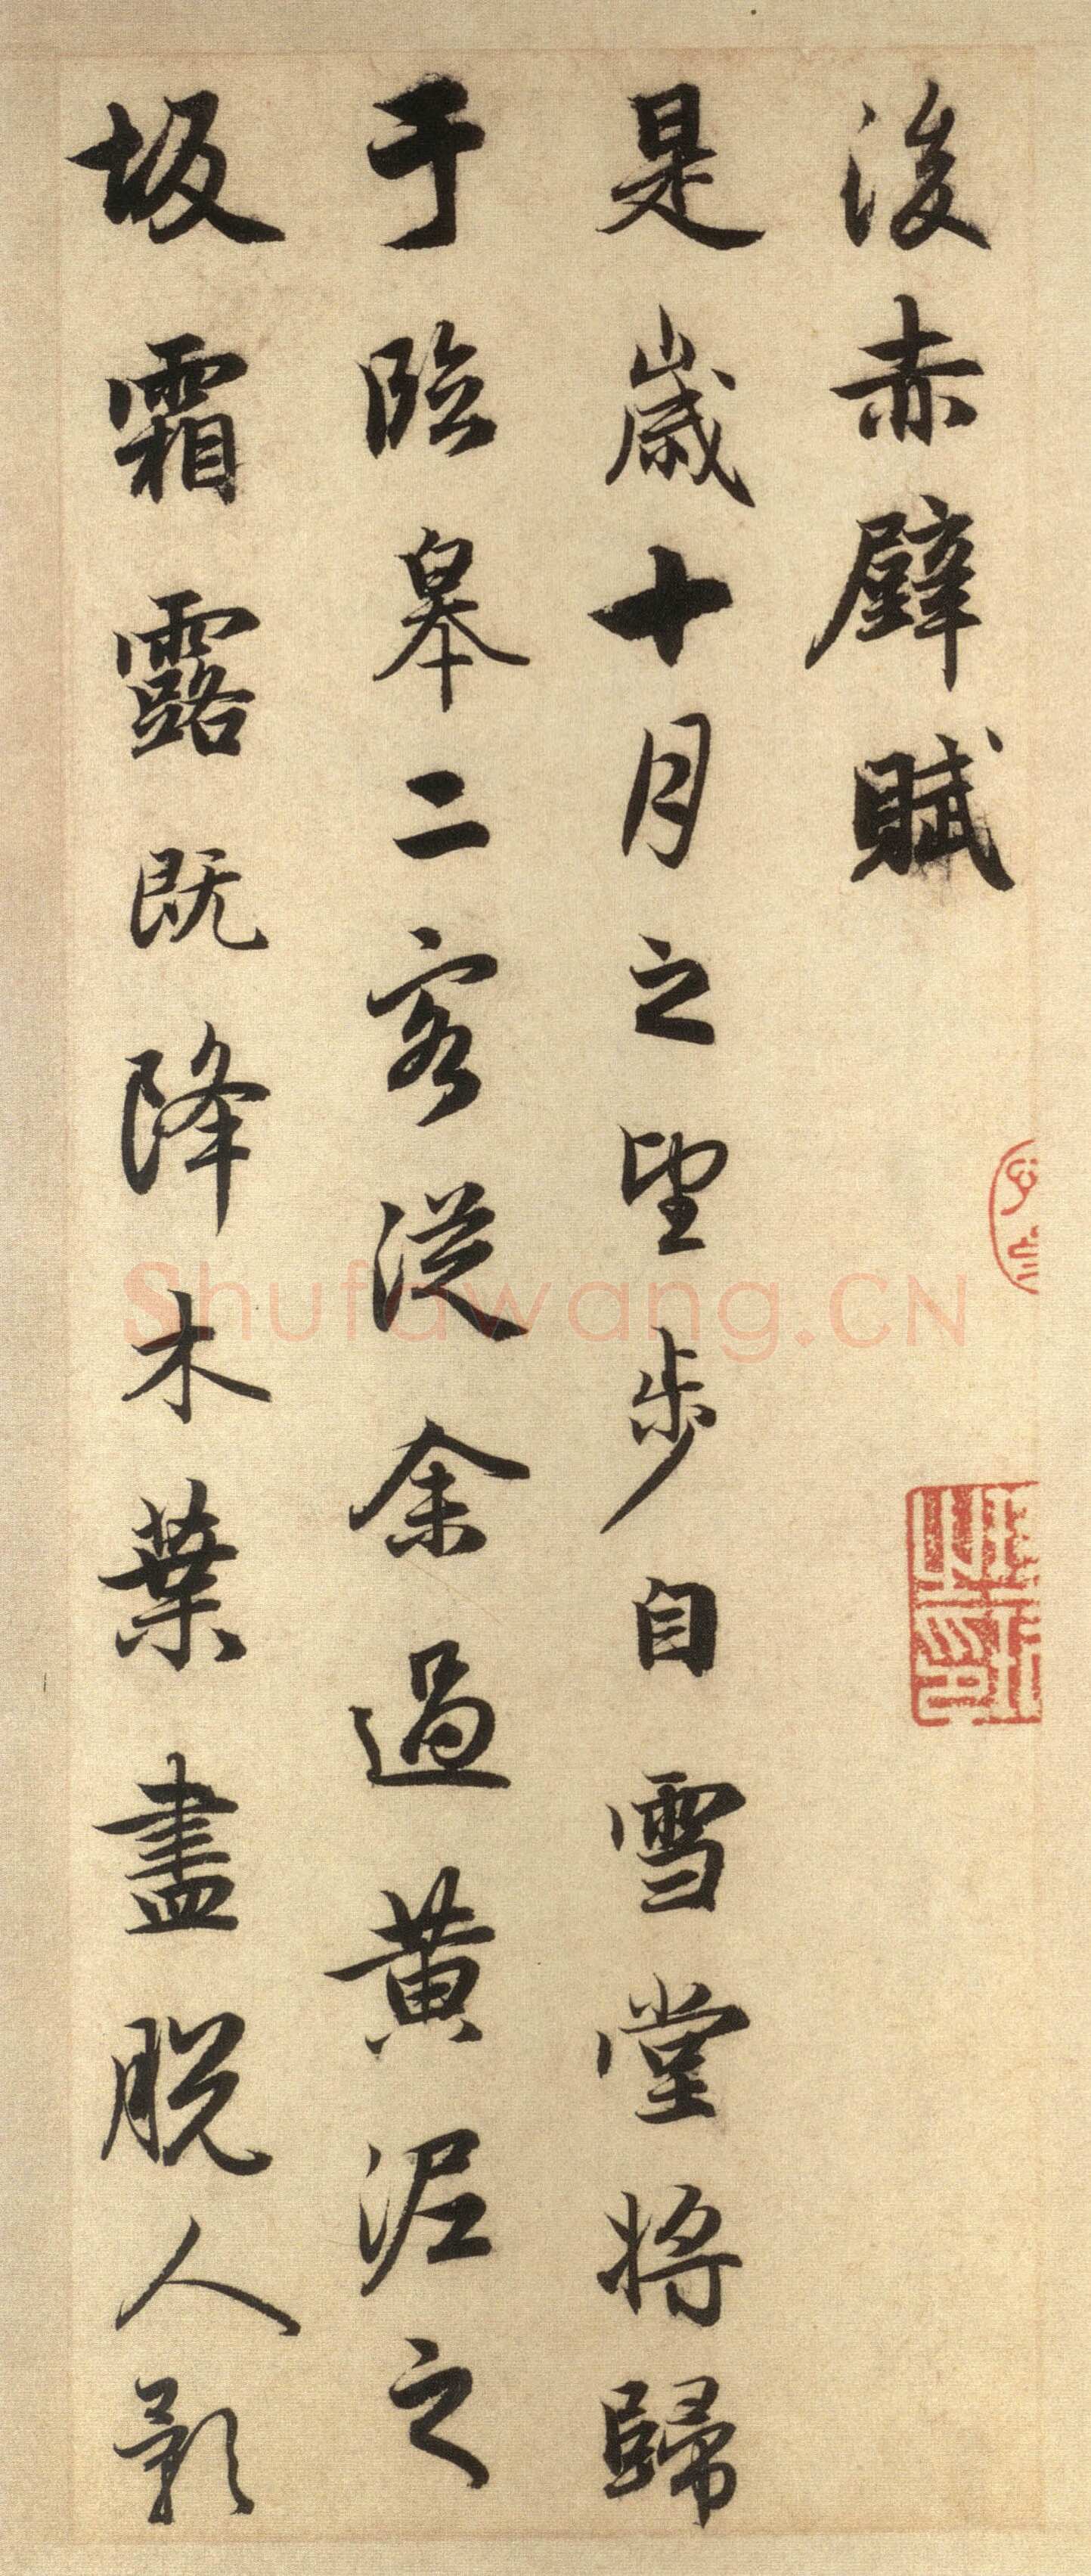 後赤壁賦
是歲十月之望步自雪堂將歸
于臨皋二客從余過黃泥之
坂霜露既降木葉盡脫人影
Shufawang.CN